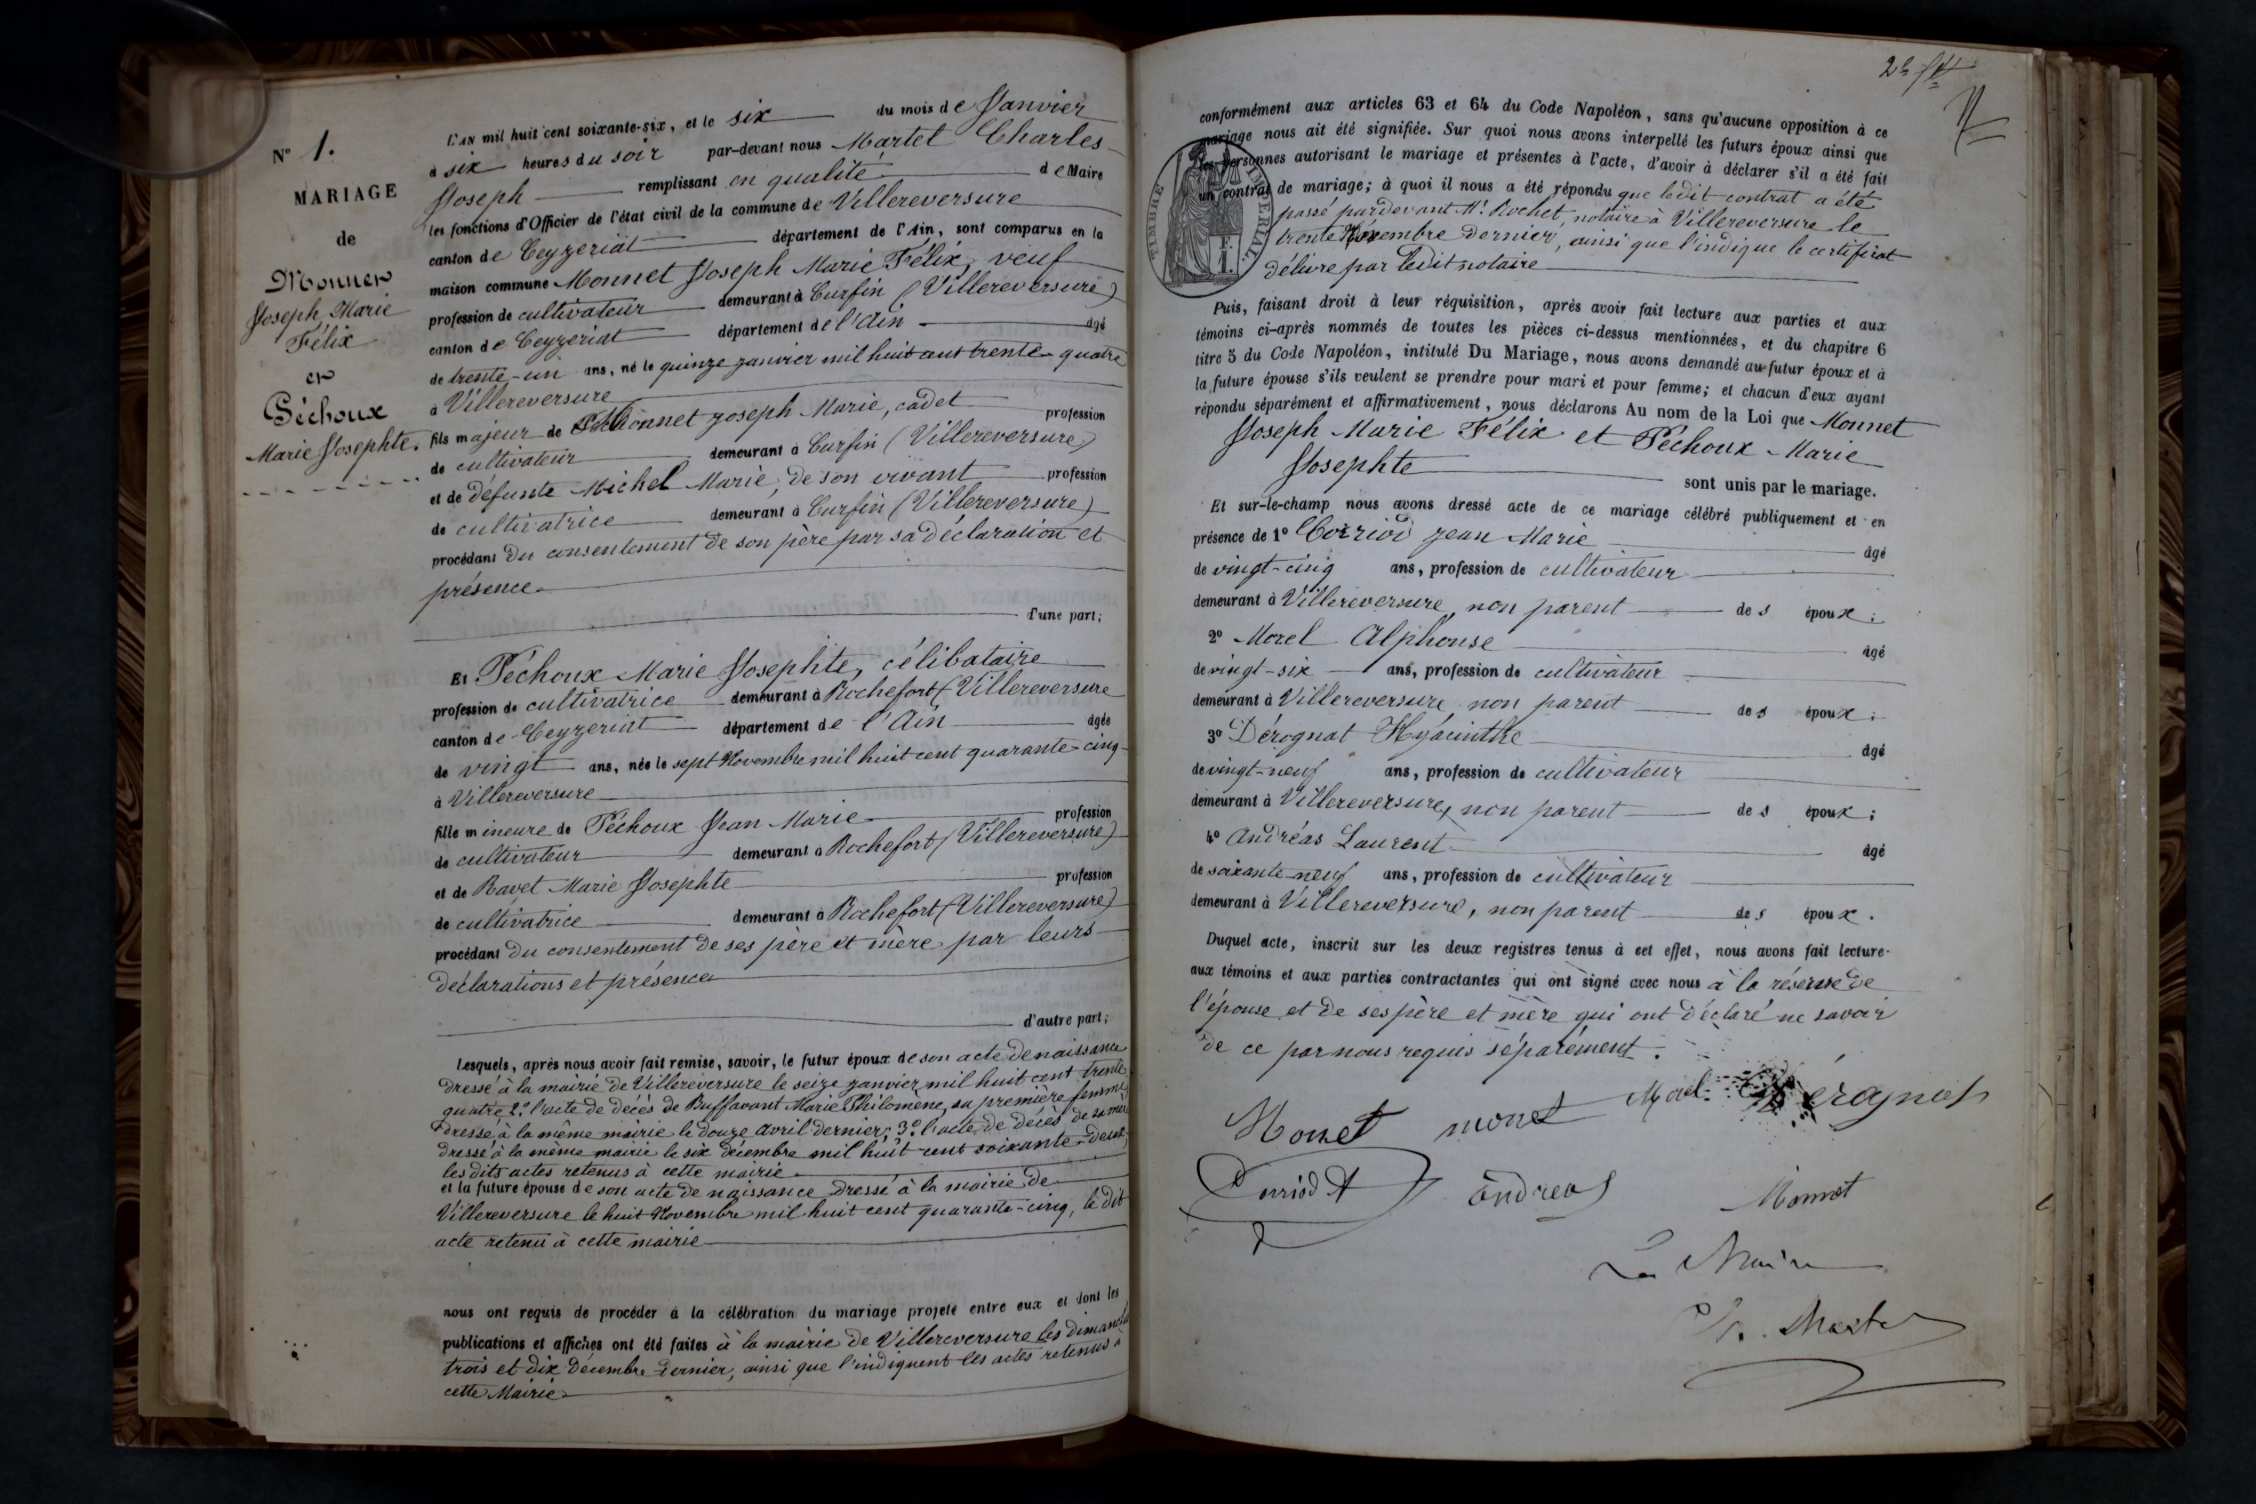 N° 1.
MARIAGE
de
Monnet
Joseph Marie
Félix
et
Péchoux
Marie Josephte.
L'AN mil huit cent soixante-six, et le six du mois de Janvier
à six heures du soir par-devant nous Martel Charles
Joseph remplissant en qualité de Maire
les fonctions d'Officier de l'état civil de la commune de Villereversure
canton de Ceyzeriat département de l'Ain, sont comparus en la
maison commune Monnet Joseph Marie Félix, veuf
profession de cultivateur demeurant à Curfin (Villereversure)
canton de Ceyzeriat département de l'Ain âgé
de trente-un ans, né le quinze janvier mil huit cent trente-quatre
à Villereversure
fils majeur de Monnet joseph Marie, cadet profession
de cultivateur demeurant à Curfin (Villereversure)
et de défunte Michel Marie, de son vivant profession
de cultivatrice demeurant à Curfin (Villereversure)
procédant du consentement de son père par sa déclaration et
présence
d'une part;
Et Péchoux Marie Josephte, célibataire
profession de cultivatrice demeurant à Rochefort (Villereversure
canton de Ceyzeriat département de l'Ain âgée
de vingt ans, née le sept Novembre mil huit cent quarante-cinq
à Villereversure
fille mineure de Péchoux Jean Marie profession
de cultivateur demeurant à Rochefort (Villereversure)
et de Ravet Marie Josephte profession
de cultivatrice demeurant à Rochefort (Villereversure)
procédant du consentement de ses père et mère par leurs
déclarations et présence
d'autre part;
Lesquels, après nous avoir fait remise, savoir, le futur époux de son acte de naissance
dressé à la mairie de Villereversure le seize janvier mil huit cent trente
quatre 2° l'acte de décès de Buffavant Marie Philomène, sa première femme
dressé à la même mairie le douze avril dernier; 3° l'acte de décès de sa mère
dressé à la même mairie le six décembre mil huit cent soixante-deux
les dits actes retenus à cette mairie
et la future épouse de son acte de naissance dressé à la mairie de
Villereversure le huit Novembre mil huit cent quarante-cinq, le dit
acte retenu à cette mairie
nous ont requis de procéder à la célébration du mariage projeté entre eux et dont les
publications et affiches ont été faites à la mairie de Villereversure les dimanches
trois et dix Décembre dernier, ainsi que l'indiquent les actes retenus à
cette Mairie
conformément aux articles 63 et 64 du Code Napoléon, sans qu'aucune opposition à ce
mariage nous ait été signifiée. Sur quoi nous avons interpellé les futurs époux ainsi que
les personnes autorisant le mariage et présentes à l'acte, d'avoir à déclarer s'il a été fait
un contrat de mariage; à quoi il nous a été répondu que ledit contrat a été
passé pardevant Mt. Rochet, notaire à Villereversure le
trente Novembre dernier, ainsi que l'indique le certificat
délivré par ledit notaire
TIMBRE IMPÉRIAL.
Puis, faisant droit à leur réquisition, après avoir fait lecture aux parties et aux
témoins ci-après nommés de toutes les pièces ci-dessus mentionnées, et du chapitre 6
titre 5 du Code Napoléon, intitulé Du Mariage, nous avons demandé au futur époux et à
la future épouse s'ils veulent se prendre pour mari et pour femme; et chacun d'eux ayant
répondu séparément et affirmativement, nous déclarons Au nom de la Loi que Monnet
Joseph Marie Félix et Péchoux Marie
Josephte sont unis par le mariage.
Et sur-le-champ nous avons dressé acte de ce mariage célébré publiquement et en
présence de 1° Corriod jean Marie âgé
de vingt-cinq ans, profession de cultivateur
demeurant à Villereversure, non parent des époux;
2° Morel Alphonse âgé
de vingt-six ans, profession de cultivateur
demeurant à Villereversure non parent des époux;
3° Dérognat Hyacinthe âgé
de vingt-neuf ans, profession de cultivateur
demeurant à Villereversure, non parent des époux;
4° Andréas Laurent âgé
de soixante-neuf ans, profession de cultivateur
demeurant à Villereversure, non parent des époux.
Duquel acte, inscrit sur les deux registres tenus à cet effet, nous avons fait lecture
aux témoins et aux parties contractantes qui ont signé avec nous à la réserve de
l'épouse et de ses père et mère qui ont déclaré ne savoir
de ce par nous requis séparément.
Monet monet Morel Dérognat
Corriod Andreas Monnet
Le Maire